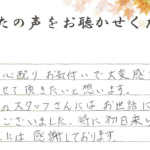 たの声をお聴かせくだ
心配り お気付いで大変感
せて頂きたいと思います。
のスタッフさんにはお世話に
ございました。特に初日来ら
には 感謝しております。